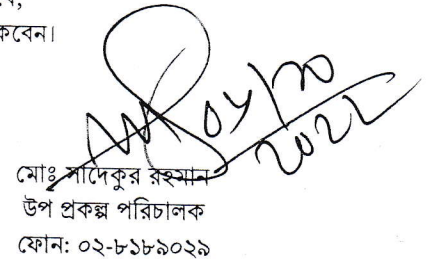 বে,
কবেন।
০৯/১০
২০২২
মোঃ সাদেকুর রহমান
উপ প্রকল্প পরিচালক
ফোন: ০২-৮১৮৯০২৯